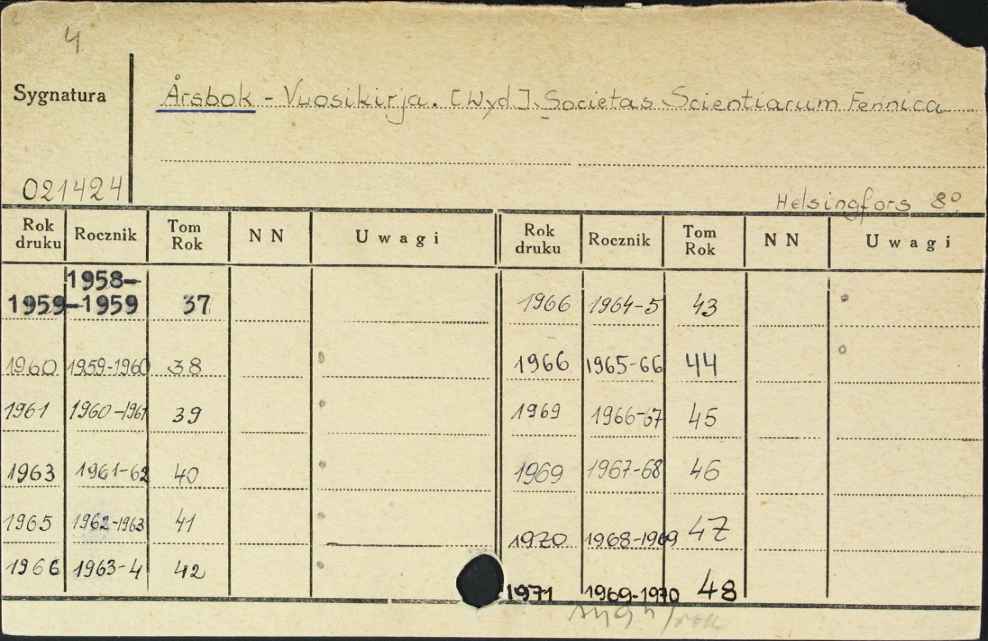 4
Sygnatura
Årsbok - Vuosikirja. [Wyd.] Societas Scientiarum Fennica
021424
Helsingfors 8°
Rok druku Rocznik Tom Rok NN Uwagi Rok druku Rocznik Tom Rok NN Uwagi
1959 1958-1959 37
1960 1959-1960 38
1961 1960-1961 39
1963 1961-62 40
1965 1962-1963 41
1966 1963-4 42
1966 1964-5 43
1966 1965-66 44
1969 1966-67 45
1969 1967-68 46
1970 1968-1969 47
1971 1969-1970 48